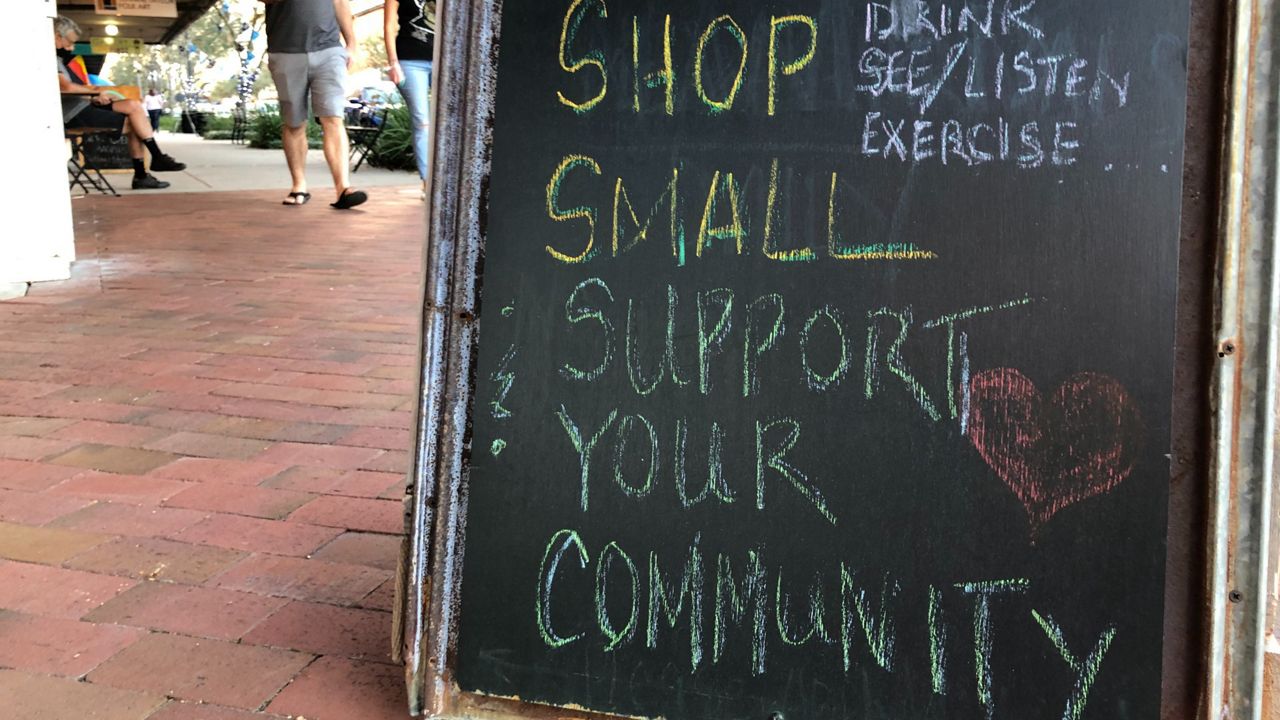 SHOP
DRINK
SEE/LISTEN
EXERCISE ....
SMALL
SUPPORT
YOUR
COMMUNITY